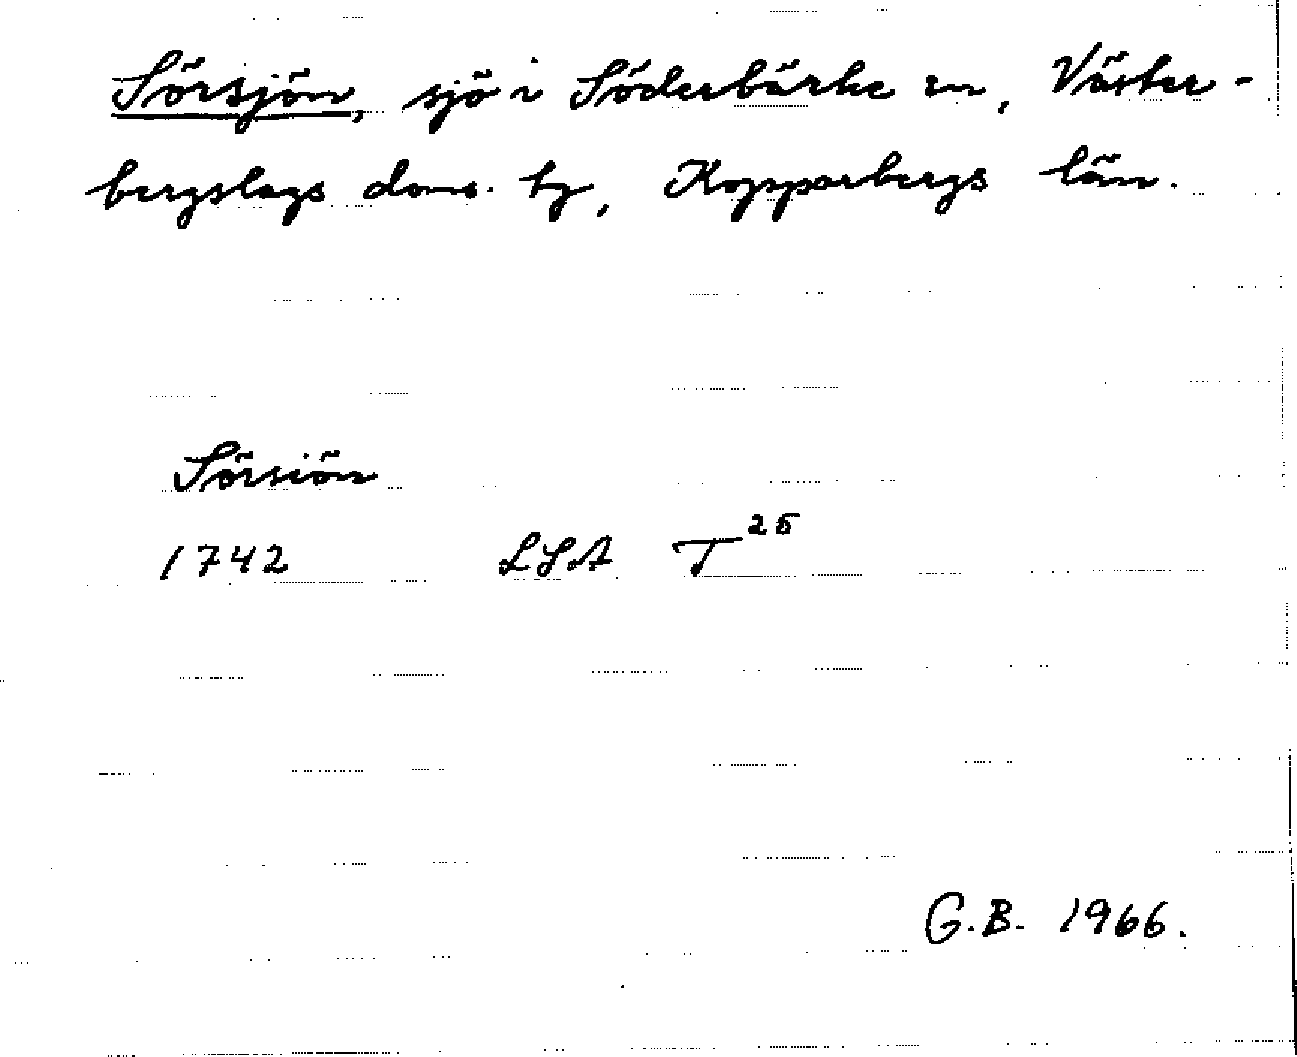 Sörsjön, sjö i Söderbärke sn, Väster-
bergslags doms. tg, Kopparbergs län.
Sörsiön
1742 LSA T25
G.B. 1966.